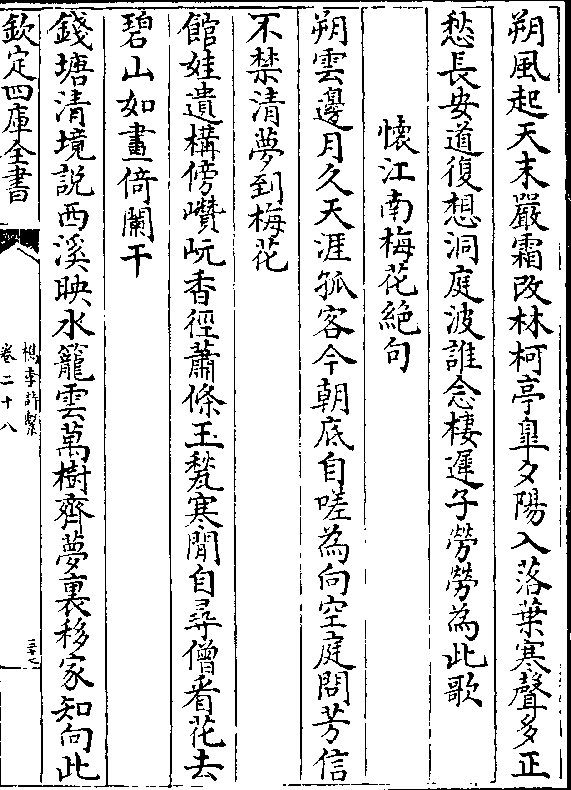 朔風起天末嚴霜改林柯亭臯夕陽入落葉寒聲多正
愁長安道復想洞庭波誰念棲遲子勞勞為此歌
懐江南梅花絶句
朔雲邊月久天涯孤客今朝底自嗟為向空庭問芳信
不禁清夢到梅花
館娃遺構傍巑岏香徑蕭條玉甃寒閒自尋僧看花去
碧山如畫倚闌干
錢塘清境説西溪映水籠雲萬樹齊夢裏移家知向此
欽定四庫全書
檇李詩繫
卷二十八